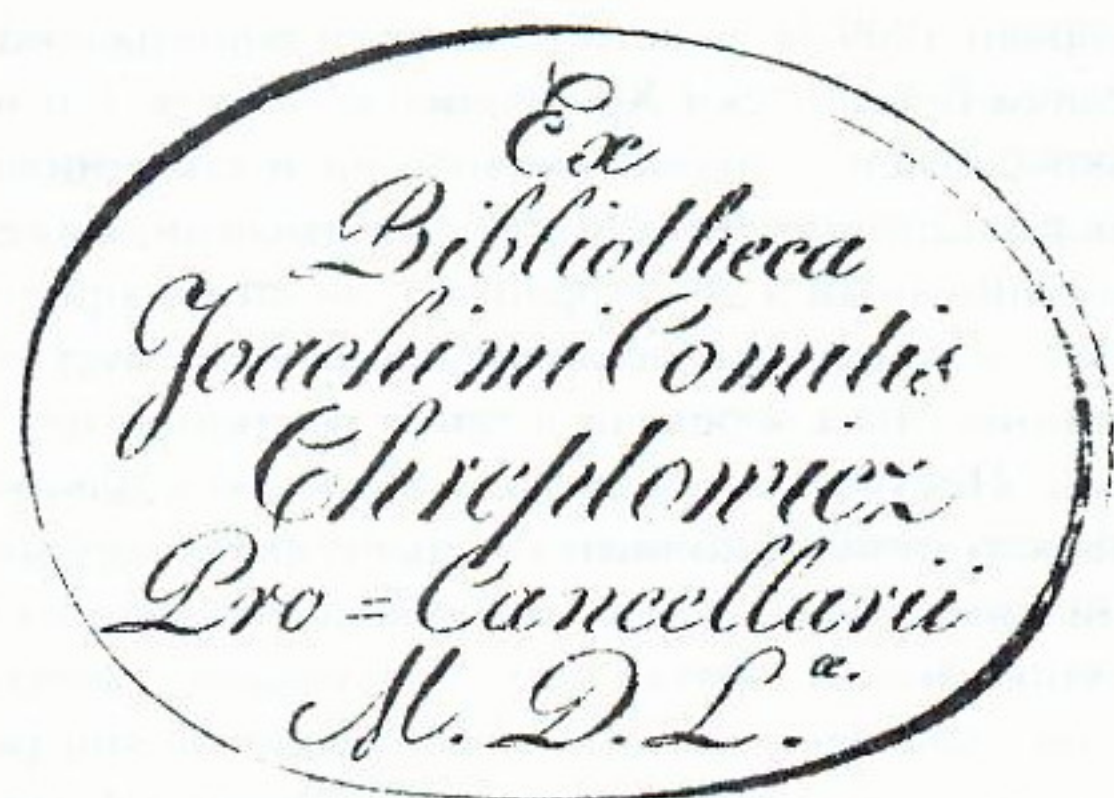 Ex
Bibliotheca
Joachimi Comitis
Chreptowicz
Pro = Cancellarii
M. D. L æ.